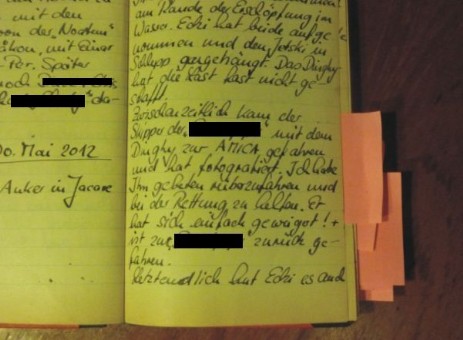 mit den
von der
mit einer
Später
noch
da-
Mai 2012
Anker in Jacare
am Rande der Erschöpfung im
Wasser. Ecki hat beide aufge
nommen und den Jetski in
Schlepp gehängt. Das Dinghy
hat die Last fast nicht ge
schafft.
Zwischenzeitlich kam der
Skipper der mit dem
Dinghy zur AMICA gefahren
und hat fotografiert. Ich habe
ihn gebeten rüberzufahren und
bei der Rettung zu helfen. Er
hat sich einfach geweigert! +
ist zur zurück ge-
fahren.
Letztendlich hat Ecki es auch